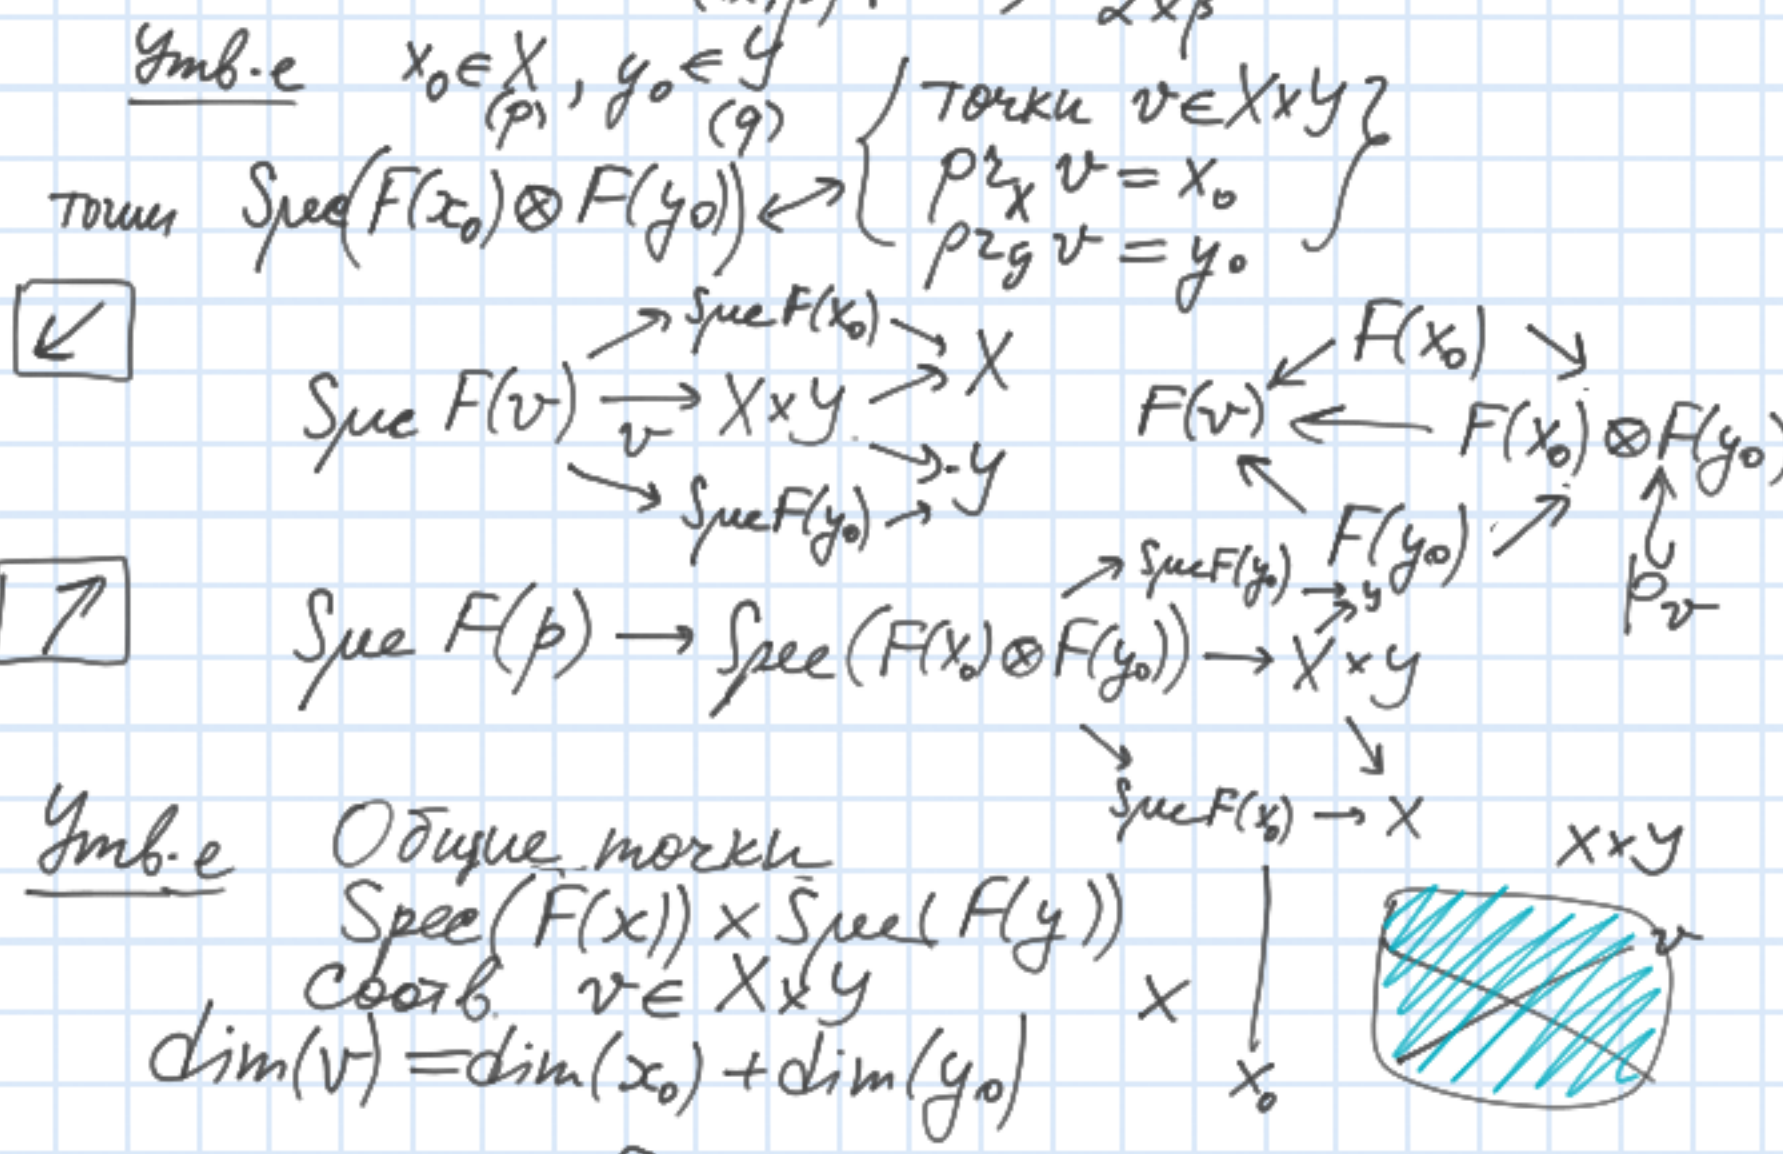 Утв-е x₀ ∈ X, y₀ ∈ Y
(p) (q)
точки Spec(F(x₀) ⊗ F(y₀)) ↔ { точки v ∈ X×Y
pr_X v = x₀
pr_y v = y₀ }
↙
Spec F(v) → Spec F(x₀) → X
Spec F(v) →_v X×Y → X
X×Y → Y
Spec F(v) → Spec F(y₀) → Y
F(v) ← F(x₀) → F(x₀) ⊗ F(y₀)
F(v) ← F(x₀) ⊗ F(y₀)
F(v) ← F(y₀) → F(x₀) ⊗ F(y₀)
p_v
↗
Spec F(p) → Spec(F(x₀) ⊗ F(y₀)) → X×Y
Spec F(y₀) → y
Spec F(x₀) → X
Утв-е Общие точки
Spec(F(x)) × Spec(F(y))
соотв. v ∈ X×Y
dim(v) = dim(x₀) + dim(y₀)
X
x₀
X×Y
v